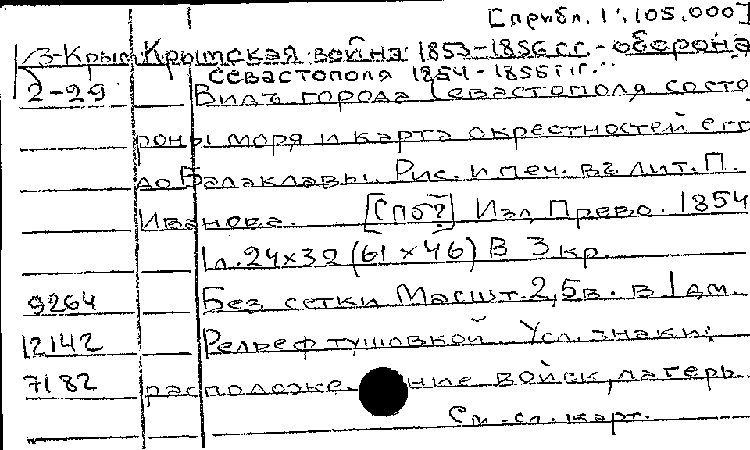 [прибл. 1:105.000]
13-Крым Крымская война 1853-1856 г.г. - оборона
Севастополя 1854-1855 г.г.
2-29 Видъ города Севастополя состо
роны моря и карта окрестностей его
до Балаклавы. Рис. и печ. въ лит. П.
Иванова. [Спб?] Изд. Прево. 1854
1 л. 24х32 (61 х 46) В 3 кр.
9264 Без сетки Масшт. 2,5 в. в 1 дм.
12142 Рельеф тушовкой. Усл. знаки:
7182 расположение войск, лагерь.
См. сл. карт.